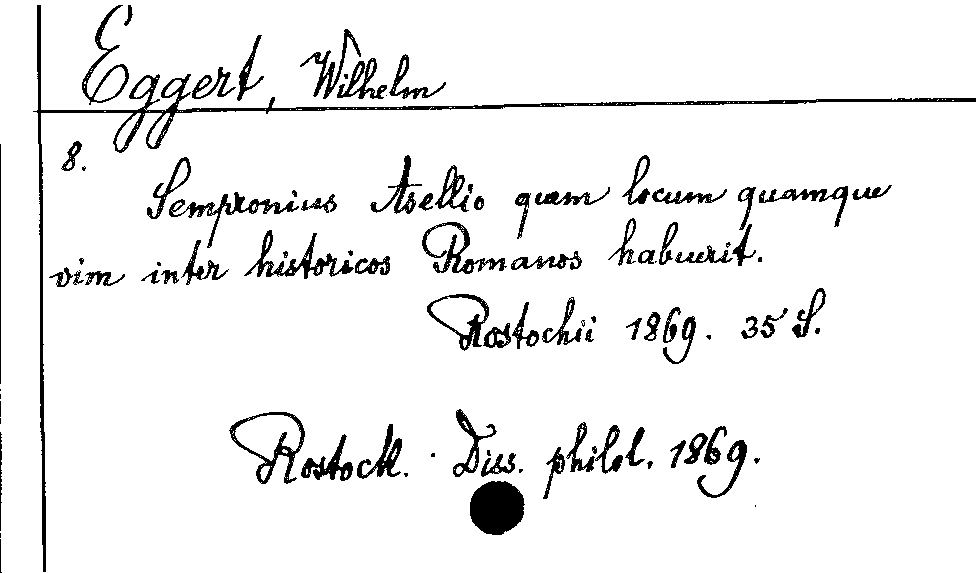 Eggert, Wilhelm
8.
Sempronius Asellio quem locum quamque
vim inter historicos Romanos habuerit.
Rostochii 1869. 35 S.
Rostock. Diss. philol. 1869.